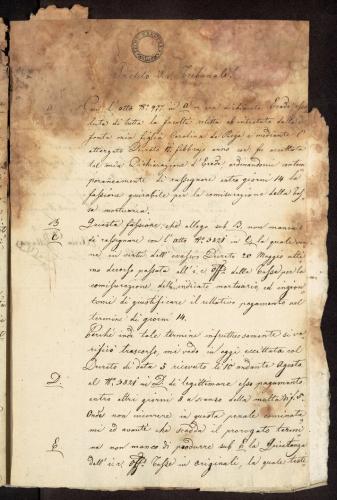 Inclito I. R. Tribunale!
A. Con l'atto N.° 977 in A m'era dichiarata Erede
luta di tutta la facoltà relitta ab intestato dalla de
fonta mia figlia Carolina de Rega e mediante l'
attergato Decreto 11. febbrajo anno cor. fu accettata
tal mia Dichiarazione d'Erede ordinandomi contem
poraneamente di rassegnare entro giorni 14 la
fassione giurabile per la commisurazione della Tas
sa mortuaria.
B. Questa fassione, che allego sub B, non mancai
C. di rassegnare con l'atto N.° 2328 in C, la quale
ne, in virtù dell'evasivo Decreto 20 Maggio ulti
mo decorso passata all'i. r. Off.° delle Tasse per la
commisurazione dell'indicato mortuario, ed ingiun
tomi di giustificare il rellativo pagamento nel
termine di giorni 14.
Perchè indi tale termine infruttuosamente si ve
rificò trascorso, mi vedo in oggi eccittata col
Decreto di data 3 ricevuto li 10 andante Agosto
D. al N.° 3821 in D. di legittimare esso pagamento
entro altri giorni 8 a scanso della multa di f.
Onde non incorrere in questa penale comminata
mi ed avanti che scada il prorogato termi
E. ne non manco di produrre sub E la Quietanza
dell'i. r. Off.° Tasse in originale, la quale